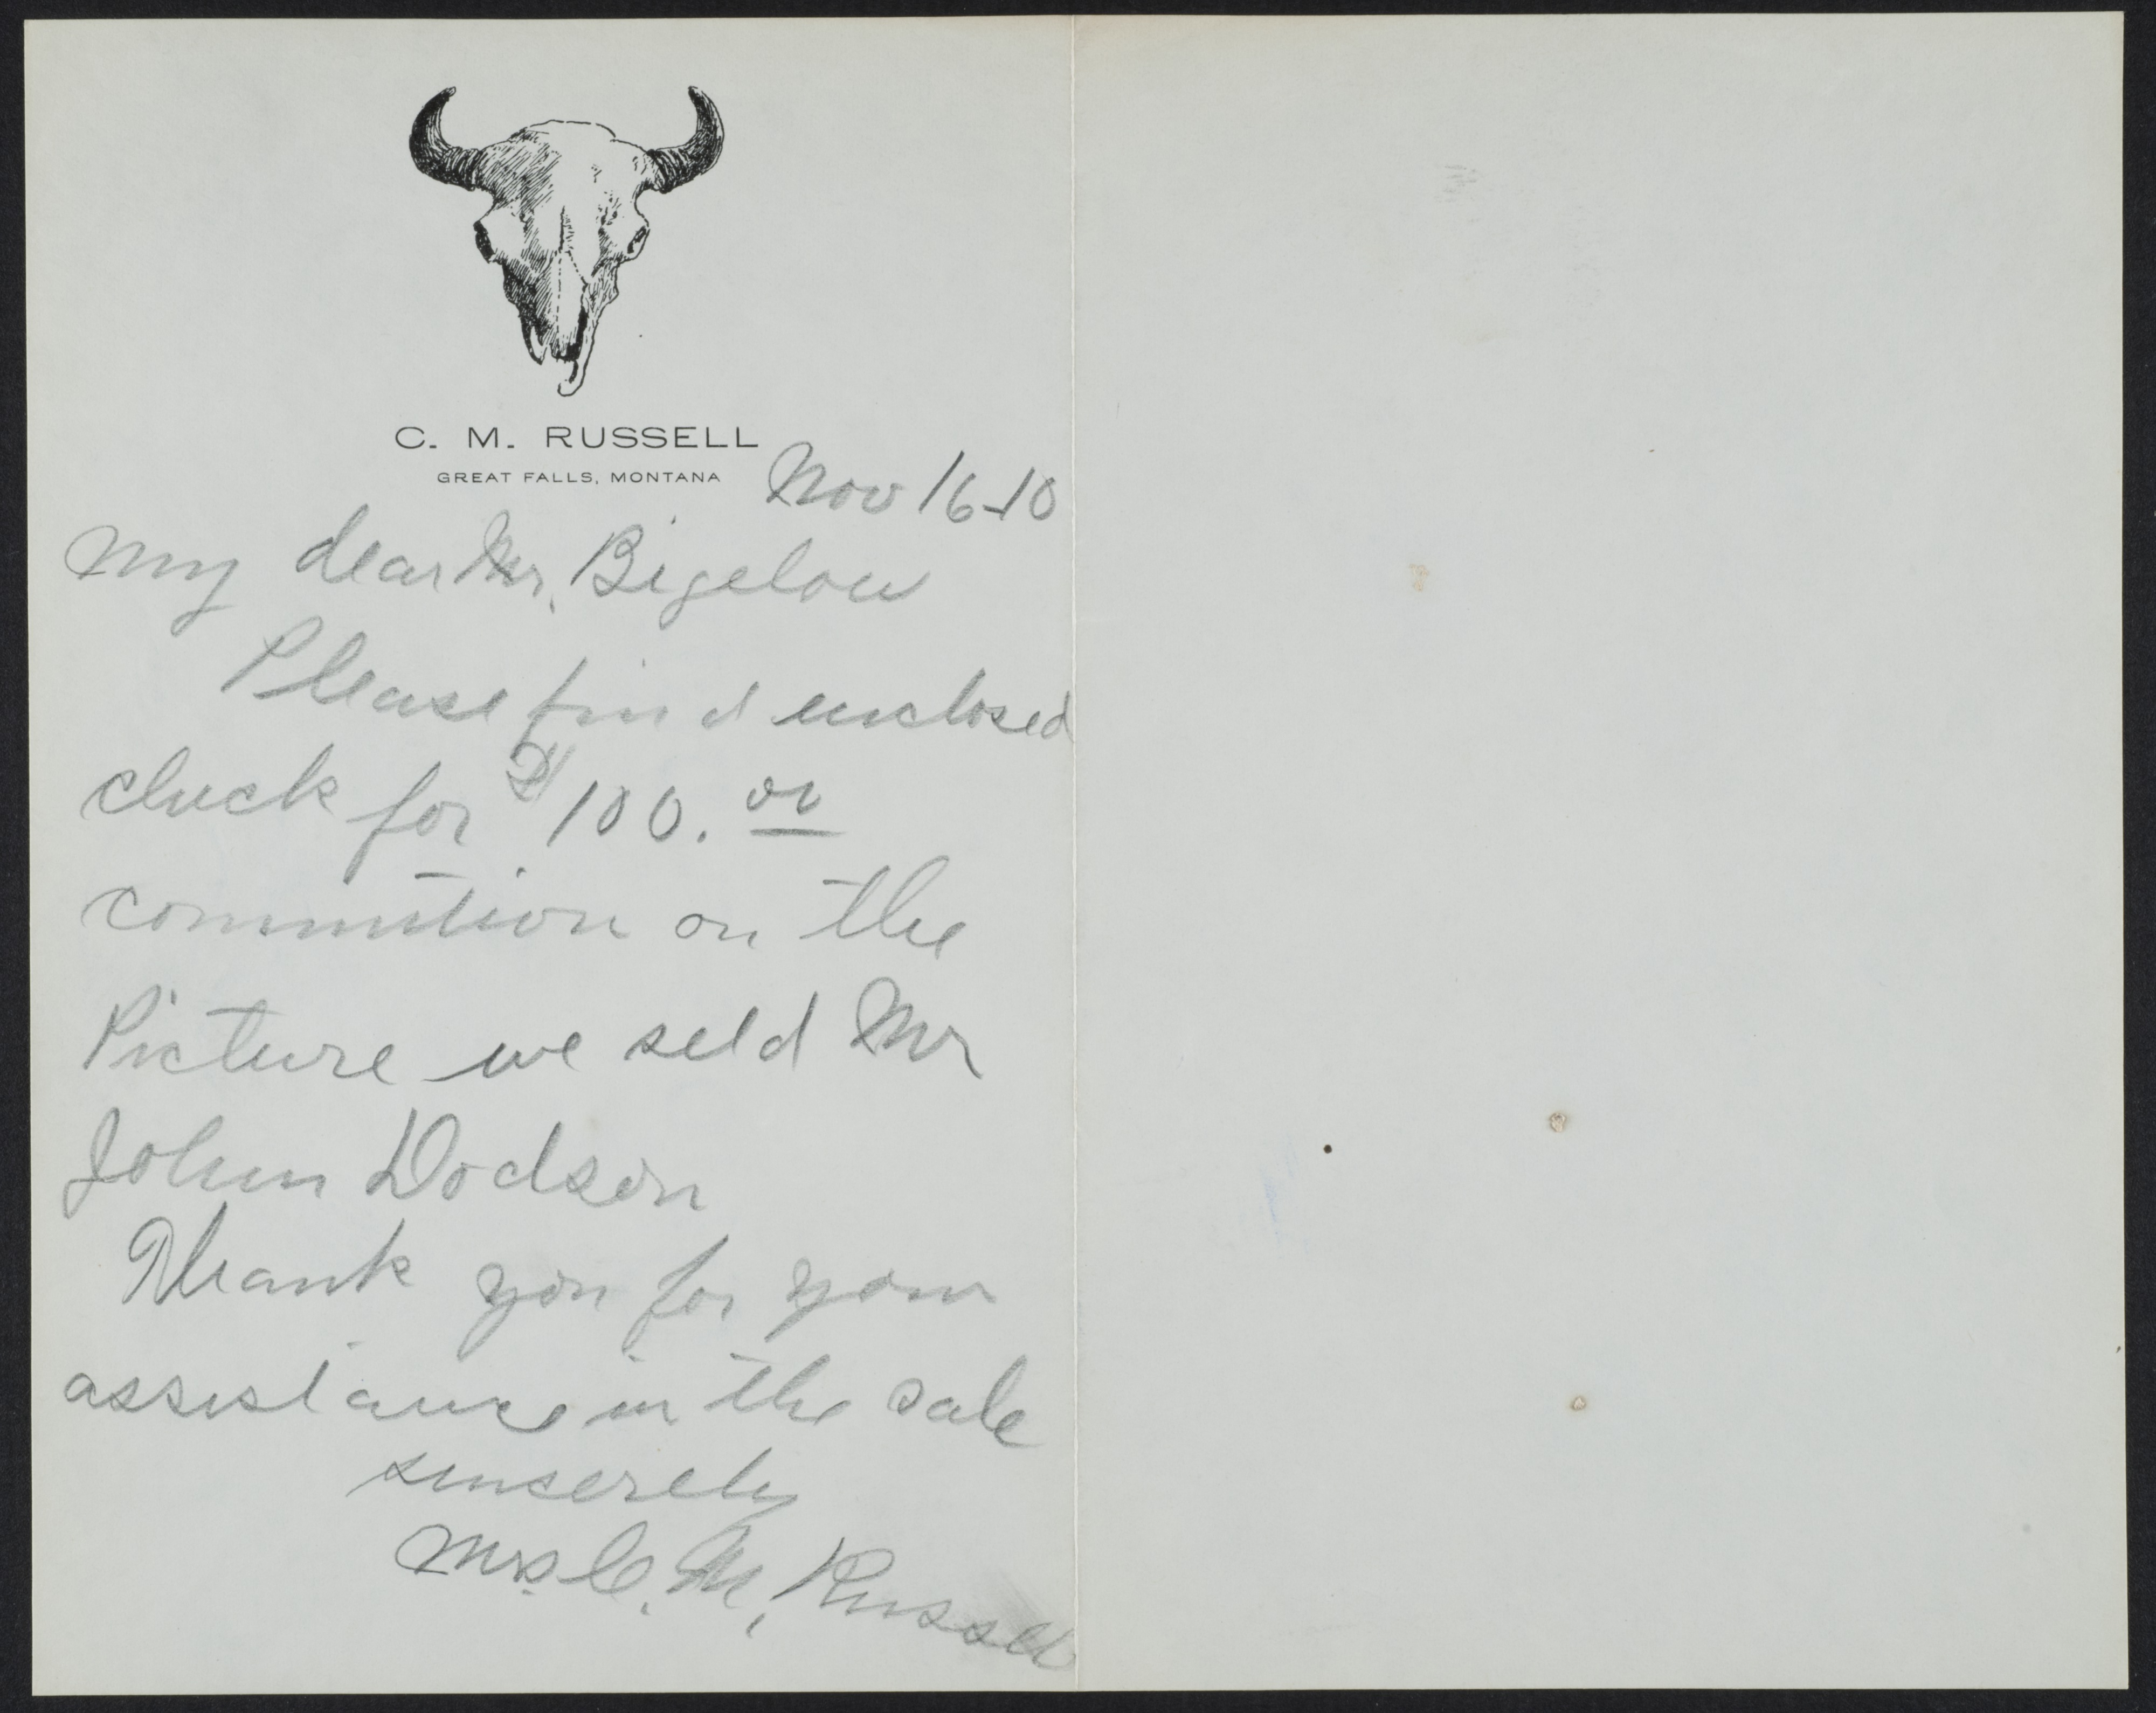 C. M. RUSSELL
GREAT FALLS, MONTANA
Nov 16-10
My dear Mr. Bigelow
Please find enclosed
check for $100.00
commition on the
Picture we sold Mr
John Dodson
Thank you for your
assistance in the sale
sincerely
Mrs. C. M. Russell